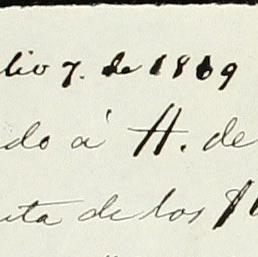 lio 7. de 1869
do á H. de
ta de los $